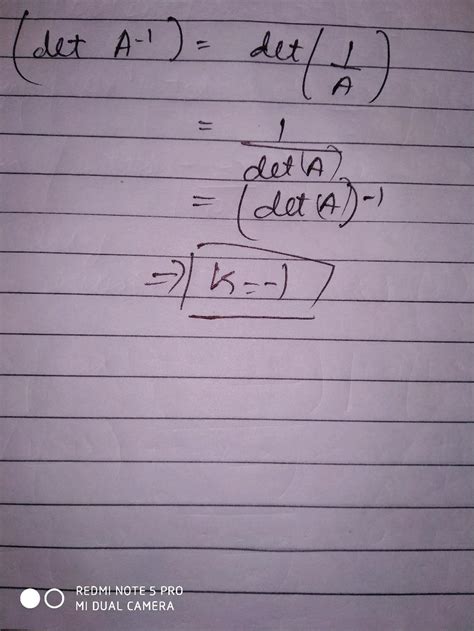 (det A⁻¹) = det(1/A)
= 1/det(A)
= (det(A))⁻¹
⇒ K=-1
REDMI NOTE 5 PRO
MI DUAL CAMERA